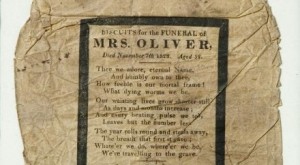 BISCUITS for the FUNERAL of
MRS. OLIVER,
Died November 7th, Aged
Thee we adore, eternal Name,
And humbly own to thee,
How feeble is our mortal frame!
What dying worms we be.
Our wasting lives grow shorter still,
As days and months increase;
And every beating pulse we tell,
Leaves but the number less.
The year rolls round and steals away,
The breath that first it gave;
Whate'er we do, where'er we be,
We're travelling to the grave.